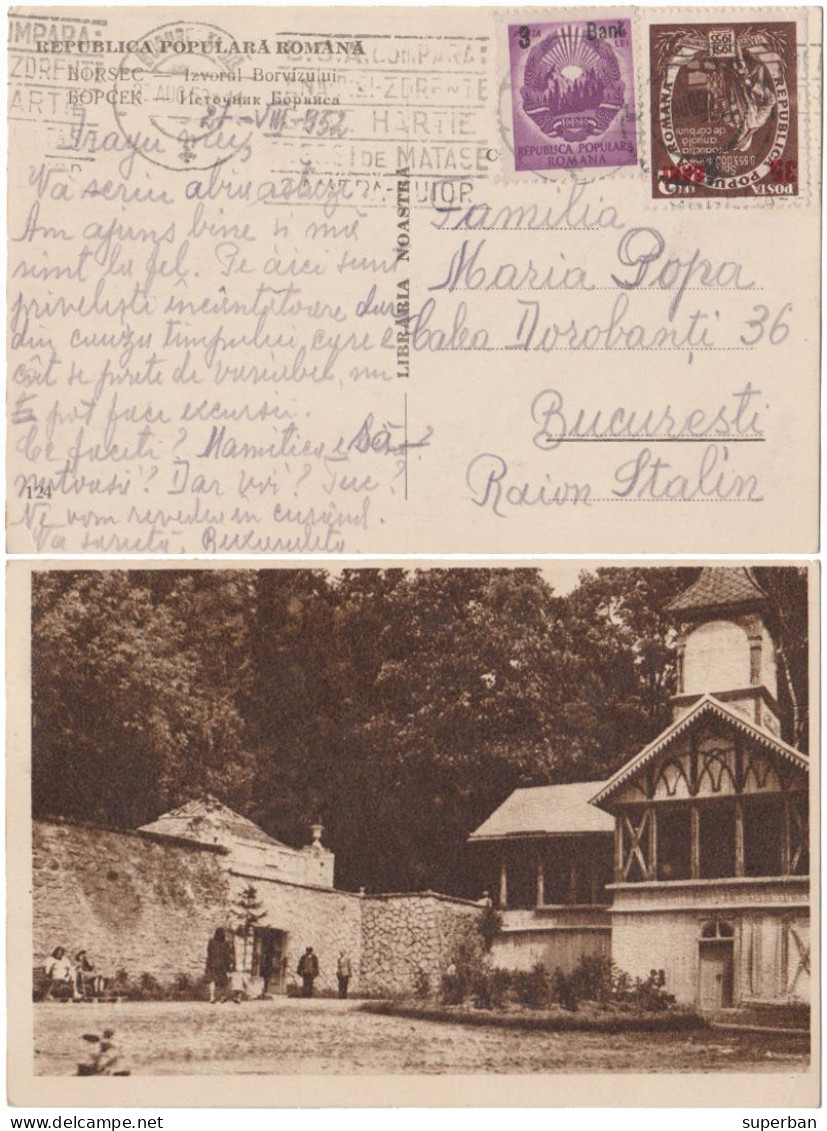 REPUBLICA POPULARĂ ROMÂNĂ
BORSEC — Izvorul Borvizului
БОРСЕК — Источник Борвиса
27-VIII-952
Dragii mei,
Vă scriu abia astăzi.
Am ajuns bine și mă
simt la fel. Pe aici sunt
priveliști încântătoare dar
din cauza timpului, care e
cât se poate de variabil, nu
pot face excursii.
Ce faceți? Mămitica
Dar voi?
Ne vom revedea în curând.
Vă sărută,
124
LIBRĂRIA NOASTRĂ
Familia
Maria Popa
Calea Dorobanți 36
București
Raion Stalin
3 Bani
POȘTA LEI
REPUBLICA POPULARĂ
ROMÂNĂ
REPUBLICA POPULARĂ ROMÂNĂ
POȘTA
CUMPARA:
ZDRENTE
HARTIE
D.C.A. CUMPARA:
ZDRENTE
HARTIE
DE MATASE
www.delcampe.net
superban